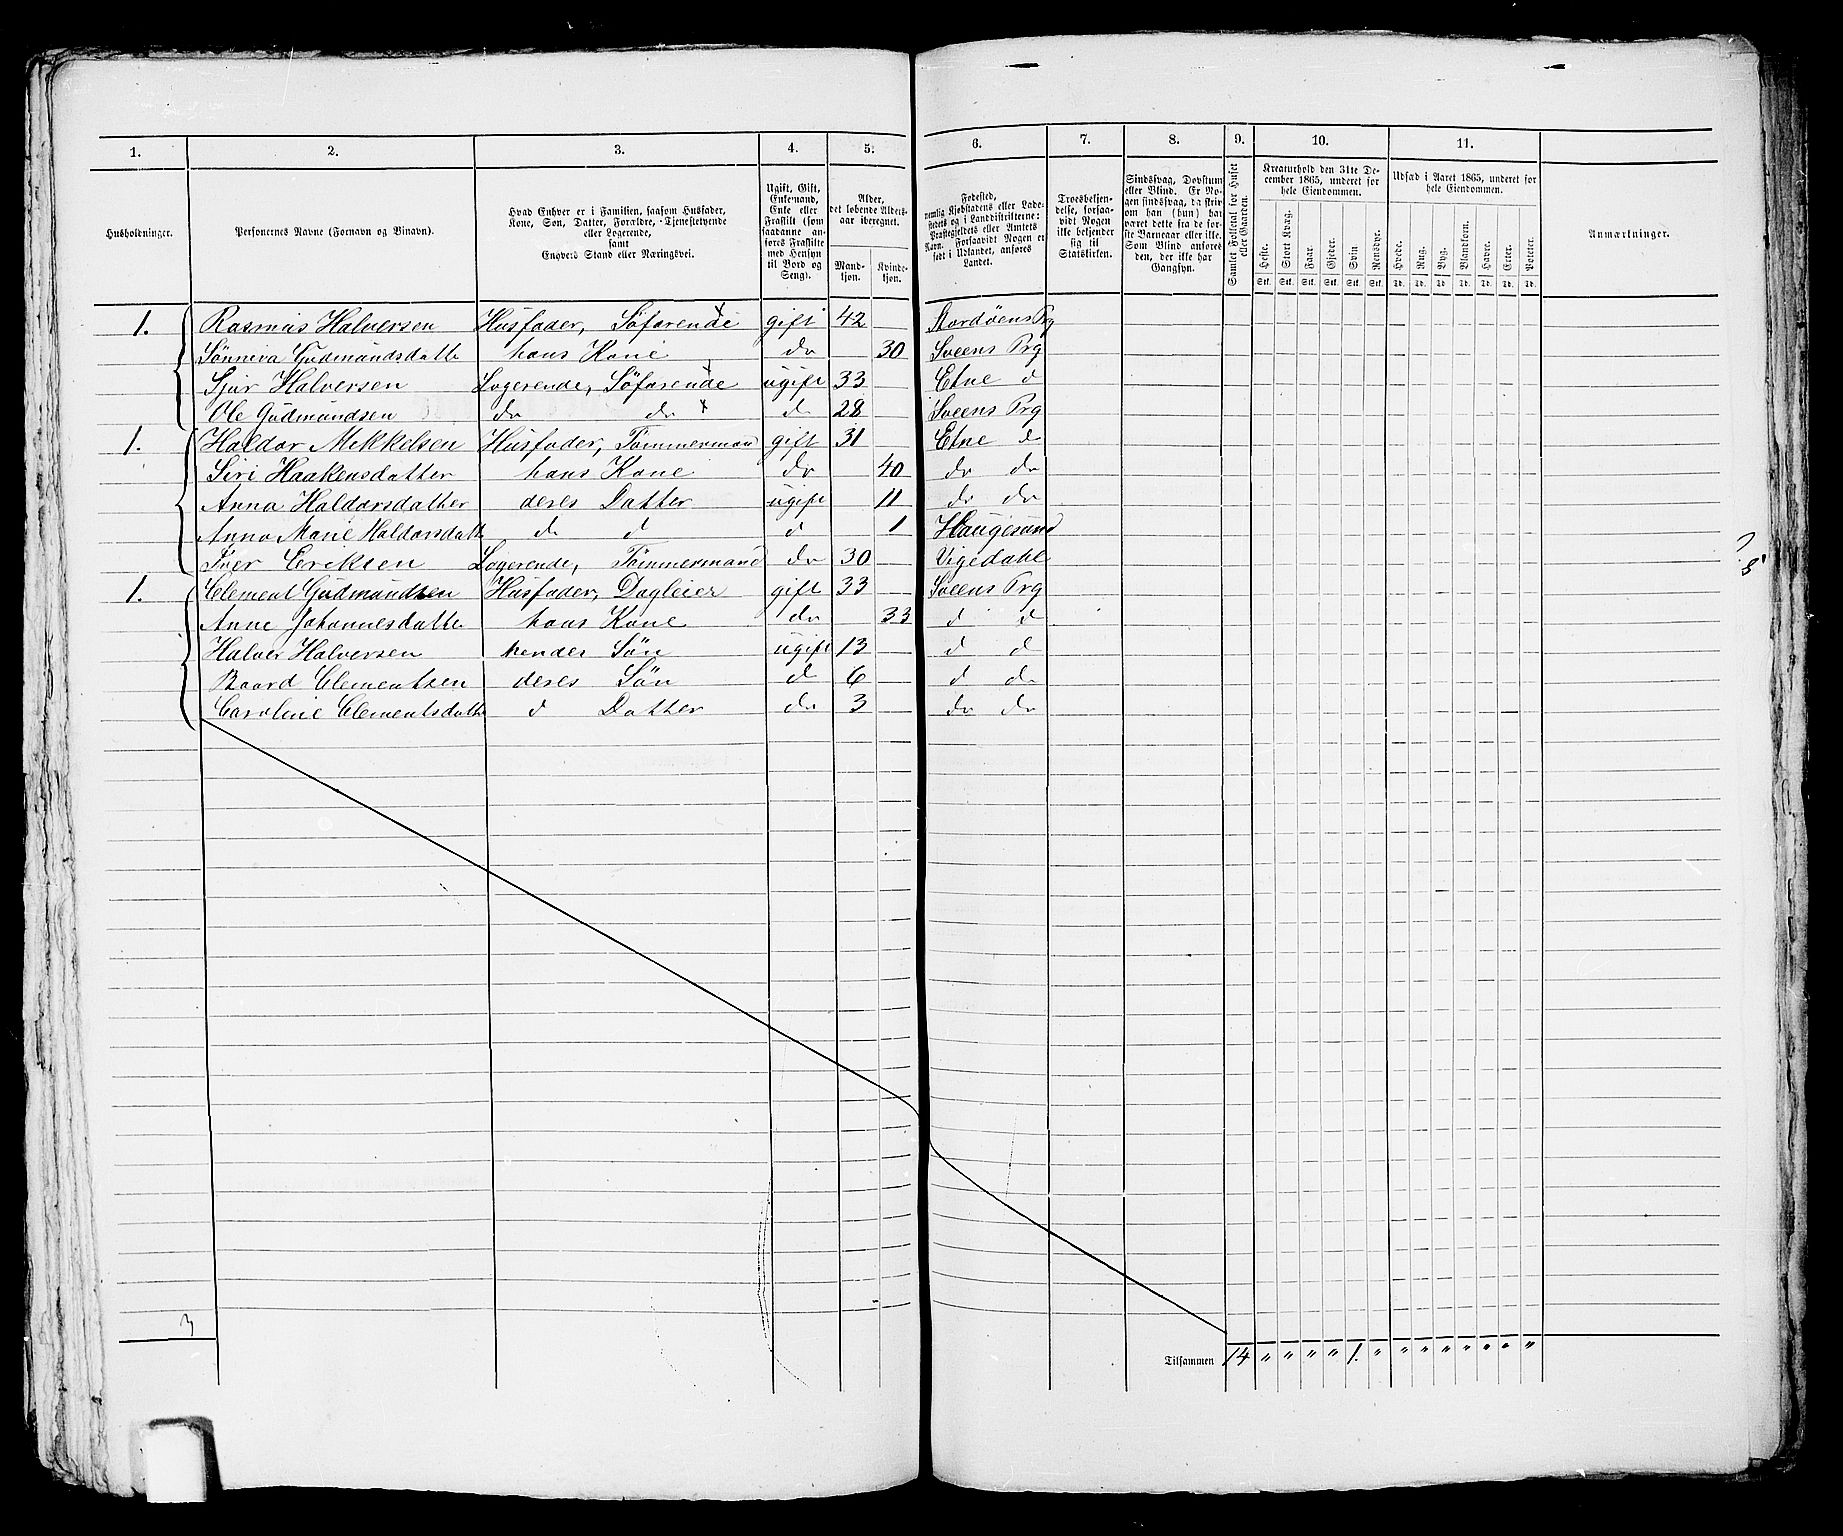 1. 2. 3. 4. 5. 6. 7. 8. 9. 10. 11.
Husholdninger.
Personernes Navne (Fornavn og Tilnavn).
Hvad Enhver er i Familien, saasom Husfader,
Kone, Søn, Datter, Forældre, Tjenestetyende
eller Logerende,
samt
Enhvers Stand eller Næringsvei.
Ugift, Gift,
Enkemand,
Enke eller
Fraskilt (som
saadanne an-
føres Fraskilte
med Hensyn
til Bord og
Seng).
Alder,
det løbende Alders-
aar iberegnet.
Mand-
kjøn.
Kvinde-
kjøn.
Fødested,
nemlig Kjøbstadens eller Lade-
stedets og i Landdistrikterne:
Præstegjeldets eller Amtets
Navn. Forsaavidt Nogen er
født i Udlandet, anføres
Landet.
Troesbekjen-
delse, forsaa-
vidt Nogen
ikke bekjender
sig til
Statskirken.
Sindssvag, Døvstum
eller Blind. Er No-
gen sindssvag, da skriv
om han (hun) har
været dette fra de før-
ste Barneaar eller ikke.
Som Blind anføres
den, der ikke har
Gangsyn.
Samlet Folketal for Huset
eller Gaarden.
Kreaturhold den 31te De-
cember 1865, underet for
hele Eiendommen.
Heste. Stort Kvæg. Faar. Gjeder. Svin. Rensdyr.
Stk. Stk. Stk. Stk. Stk. Stk.
Udsæd i Aaret 1865, underet for
hele Eiendommen.
Hvede. Rug. Byg. Blandkorn. Havre. Erter. Poteter.
Td. Td. Td. Td. Td. Td. Td.
Anmærkninger.
1. Rasmus Halversen Husfader, Søfarende gift 42 Stordøens Prg
Sønneva Gudmundsdatte hans Kone do 30 Sveens Prg
Sjur Halversen Logerende, Søfarende ugift 33 Etne d
Ole Gudmundsen do do d 28 Sveens Prg
1. Haldor Mikkelsen Husfader, Tømmermand gift 31 Etne d
Siri Haakensdatter hans Kone do 40 do do
Anna Haldorsdatter deres Datter ugift 11 do do
Anna Marie Haldorsdatte d d d 1 Haugesund
Iver Eriksen Logerende, Tømmermand do 30 Vigedahl
1. Clement Gudmundsen Husfader, Dagleier gift 33 Sveens Prg
Anne Johannesdatte hans Kone do 33 d d
Halver Halversen hendes Søn ugift 13 d d
Baard Clementsen deres Søn d 6 d do
Caroline Clementsdatte d Datter do 3 do do
3
Tilsammen 14 " " " " 1. " " " " " " " "